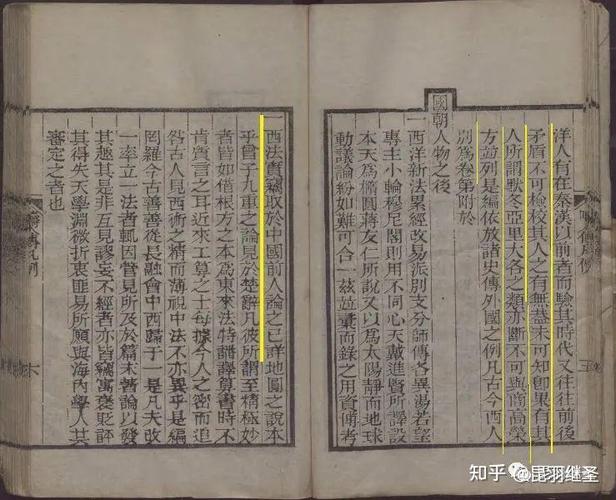 洋人有在秦漢以前者而驗其時代又往往前後
矛盾不可檢校其人之有無蓋未可知卽果有其
人所謂默冬亞里大各之類亦斷不可與商高榮
方並列是編依放諸史傳外國之例凡古今西人
別爲卷第附於
國朝人物之後
一西洋新法累經改易派別支分師傳各異湯若望
專主小輪穆尼閣則用不同心天戴進賢所譯設
本天爲橢圓蔣友仁所說又以爲太陽靜而地球
動議論紛如難可合一茲並彙而錄之用資傳考
一西法實竊取於中國前人論之已詳地圓之說本
乎曾子九重之論見於楚辭凡彼所謂至精極妙
者皆如借根方之本爲東來法特譯算書時不
肯質言之耳近來工算之士每據今人之密而追
咎古人見西術之精而薄視中法不亦異乎是編
罔羅今古善善從長融會中西歸于一是凡夫改
一率立一法者輒因管見所及於篇末著論以發
其趣其是非互見謬妄不經者亦皆竊寓褒貶評
其得失天學淵微折衷匪易所願與海內學人共
審定之者也
知乎 @昆羽继圣